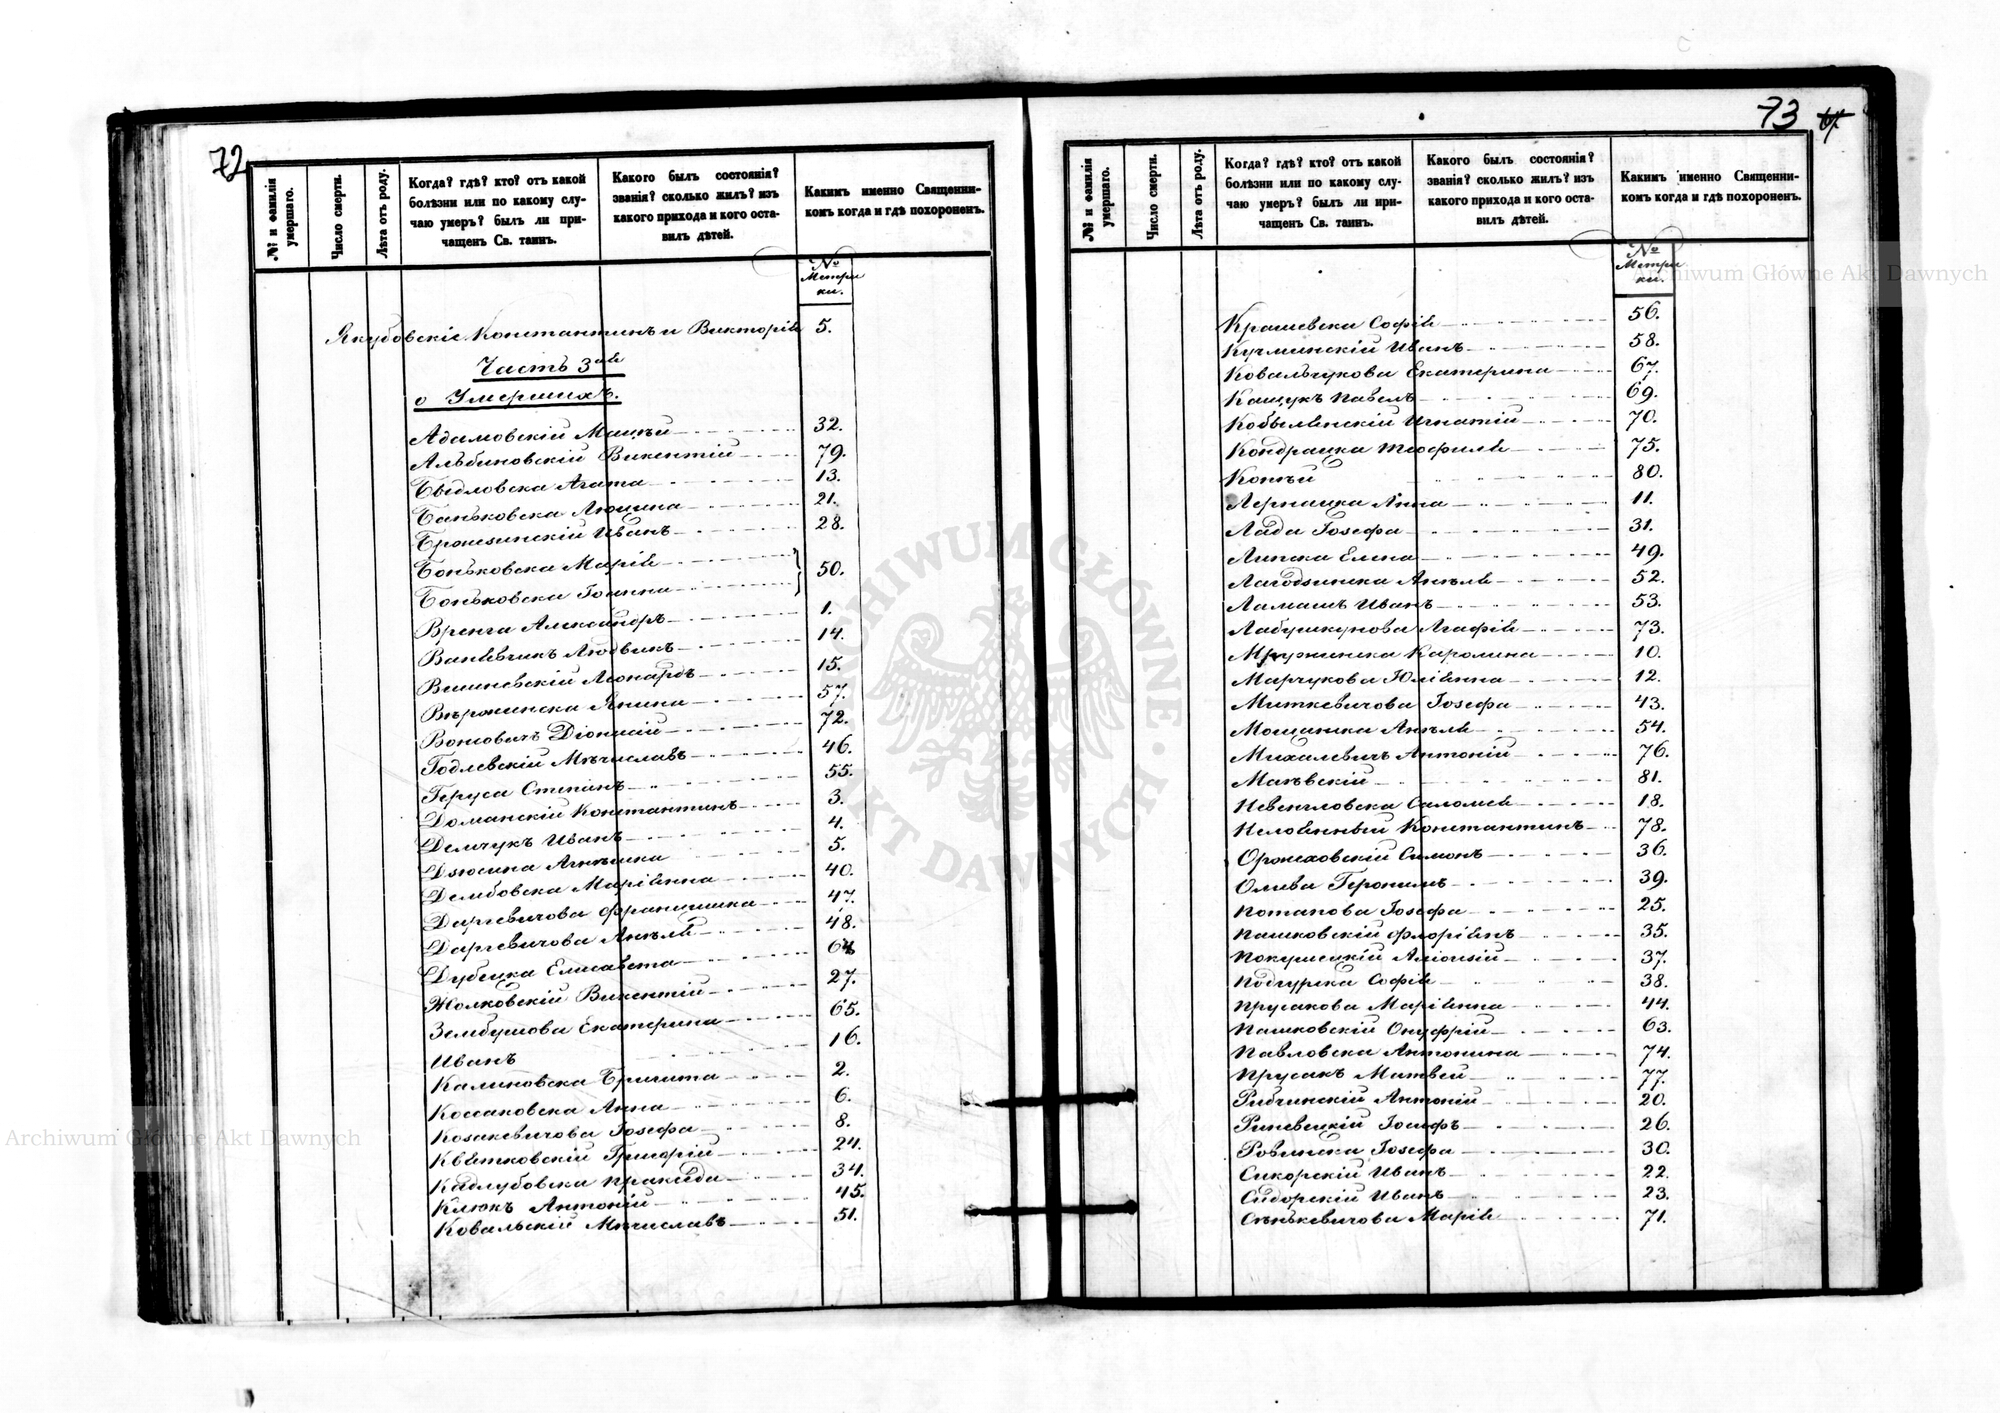 72
№ и фамилія умершаго.
Число смерти.
Лѣта отъ роду.
Когда? гдѣ? кто? отъ какой
болѣзни или по какому слу-
чаю умеръ? былъ ли при-
чащенъ Св. таинъ.
Какого былъ состоянія?
званія? сколько жилъ? изъ
какого прихода и кого оста-
вилъ дѣтей.
Какимъ именно Священни-
комъ когда и гдѣ похороненъ.
№ Метри
ки.
Якубовскіе Константинъ и Викторія 5.
Часть 3ая
о Умершихъ.
Адамовскій Мацѣй 32.
Альбиновскій Викентій 79.
Быдловска Агата 13.
Баньковска Люцина 21.
Бронезинскій Иванъ 28.
Боньковска Марія
Боньковска Іоанна 50.
Вренга Александръ 1.
Ванявчикъ Людвикъ 14.
Вишневскій Леонардъ 15.
Вѣржинска Янина 57.
Вонсовичъ Діонисій 72.
Годлевскій Мѣчиславъ 46.
Геруса Степанъ 55.
Доманскій Константинъ 3.
Демчукъ Иванъ 4.
Дзюсина Агнѣшка 5.
Дембовска Маріанна 40.
Даргевичова Францишка 47.
Даргевичова Анѣля 48.
Дубецка Елисавета
Жолковскій Викентій 27.
Зембушова Екатерина 65.
Иванъ 16.
Калиновска Бригита 2.
Коссаковска Анна 6.
Козакевичова Іозефа 8.
Квятковскій Григорій 24.
Кадлубовска Пракседа 34.
Клюкъ Антоній 45.
Ковальскій Мѣчиславъ 51.
73
№ и фамилія умершаго.
Число смерти.
Лѣта отъ роду.
Когда? гдѣ? кто? отъ какой
болѣзни или по какому слу-
чаю умеръ? былъ ли при-
чащенъ Св. таинъ.
Какого былъ состоянія?
званія? сколько жилъ? изъ
какого прихода и кого оста-
вилъ дѣтей.
Какимъ именно Священни-
комъ когда и гдѣ похороненъ.
№ Метри
ки.
Крашевска Софія 56.
Кучминскій Иванъ 58.
Ковальчукова Екатерина 67.
Кащукъ Павелъ 69.
Кобылинскій Игнатій 70.
Кондрацка Теофиля 75.
Копѣй 80.
Лернацка Анна 11.
Лада Іозефа 31.
Липска Елена 49.
Лагодзинска Анѣля 52.
Ламашъ Иванъ 53.
Лабушкунова Агафія 73.
Мружинска Каролина 10.
Марчукова Юліянна 12.
Миткевичова Іозефа 43.
Мощинска Анѣля 54.
Михалевичъ Антоній 76.
Маѣвскій 81.
Невенгловска Саломея 18.
Неловянный Константинъ 78.
Оржеховскій Симонъ 36.
Олива Геронимъ 39.
Потапова Іозефа 25.
Пашковскій Флоріянъ 35.
Покушецкій Алоизій 37.
Подгурска Софія 38.
Прусакова Маріянна 44.
Пашковскій Онуфрій 63.
Павловска Антонина 74.
Прусакъ Матвей 77.
Рибчинскій Антоній 20.
Риневецкій Іосифъ 26.
Ровинска Іозефа 30.
Сикорскій Иванъ 22.
Сидорскій Иванъ 23.
Сѣнькевичова Марія 71.
Archiwum Główne Akt Dawnych
Archiwum Główne Akt Dawnych
ARCHIWUM GŁÓWNE · AKT DAWNYCH ·